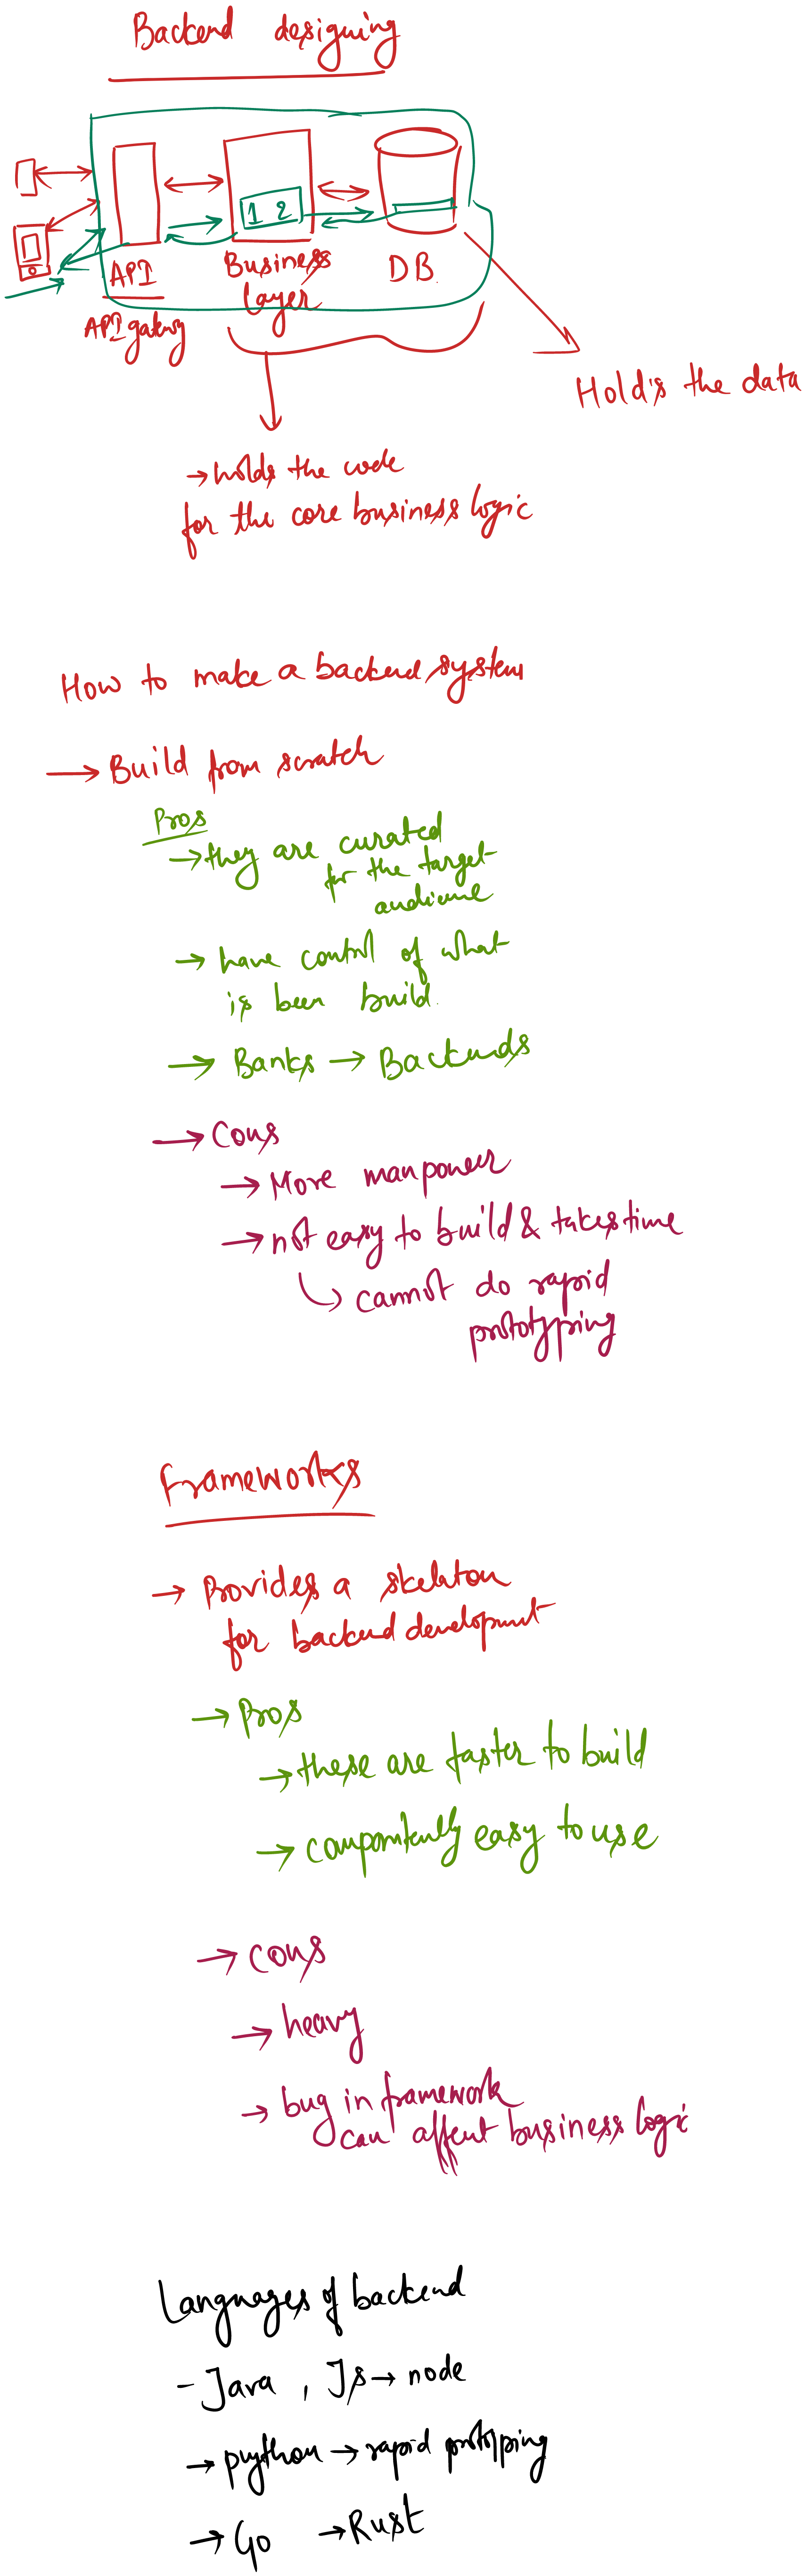 Backend designing
1 2
API
Business
Layer
DB
API gateway
Hold's the data
→ holds the code
for the core business logic
How to make a backend system
→ Build from scratch
Pros
→ they are curated
for the target
audience
→ have control of what
is been build.
→ Banks → Backends
→ Cons
→ More manpower
→ not easy to build & takes time
↳ cannot do rapid
prototyping
Frameworks
→ Provides a skeleton
for backend development
→ Pros
→ these are faster to build
→ easy to use
→ cons
→ heavy
→ bug in framework
can affect business logic
Languages of backend
- Java , Js → node
→ python → rapid prototyping
→ Go → Rust